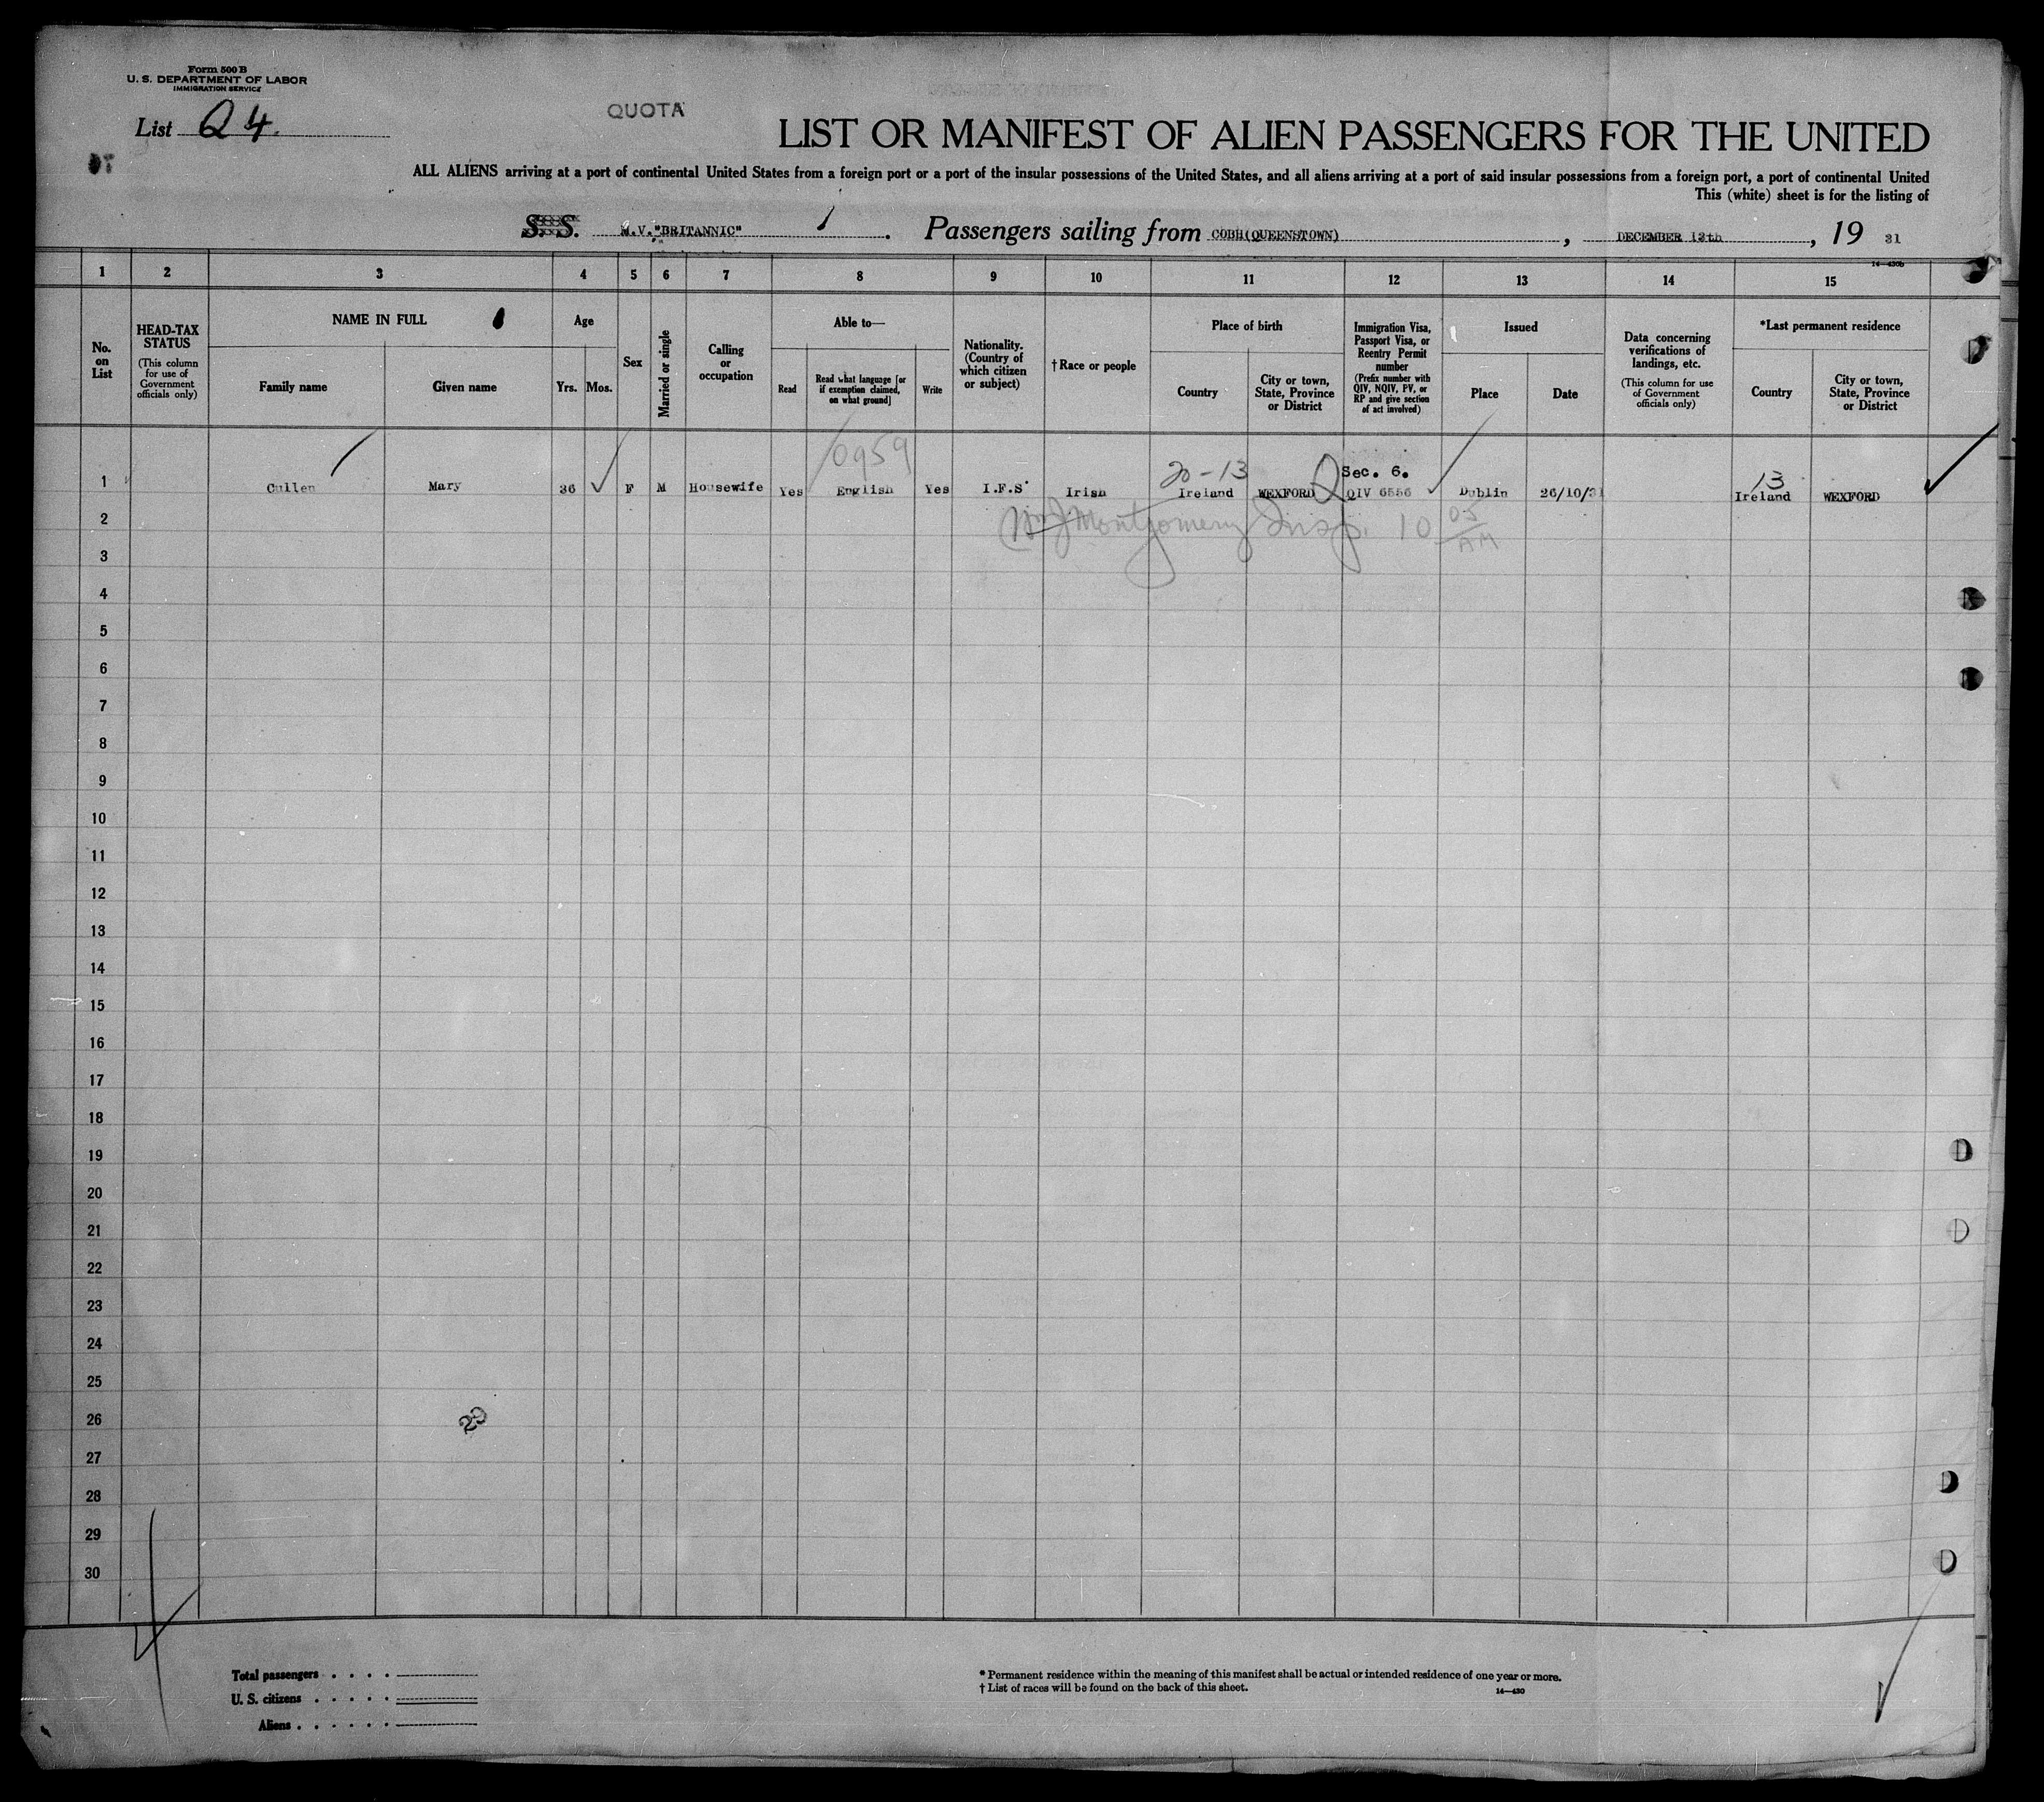 Form 500 B
U. S. DEPARTMENT OF LABOR
IMMIGRATION SERVICE
List Q 4.
QUOTA
LIST OR MANIFEST OF ALIEN PASSENGERS FOR THE UNITED
ALL ALIENS arriving at a port of continental United States from a foreign port or a port of the insular possessions of the United States, and all aliens arriving at a port of said insular possessions from a foreign port, a port of continental United
This (white) sheet is for the listing of
S. S. M.V. "BRITANNIC" . Passengers sailing from COBH(QUEENSTOWN) , DECEMBER 13th , 19 31
14—430b
1 2 3 4 5 6 7 8 9 10 11 12 13 14 15
No. on List
HEAD-TAX STATUS
(This column for use of Government officials only)
NAME IN FULL
Family name Given name
Age
Yrs. Mos.
Sex
Married or single
Calling or occupation
Able to—
Read
Read what language [or if exemption claimed, on what ground]
Write
Nationality. (Country of which citizen or subject)
† Race or people
Place of birth
Country
City or town, State, Province or District
Immigration Visa, Passport Visa, or Reentry Permit number
(Prefix number with QIV, NQIV, PV, or RP and give section of act involved)
Issued
Place Date
Data concerning verifications of landings, etc.
(This column for use of Government officials only)
*Last permanent residence
Country
City or town, State, Province or District
0959
20-13 Sec. 6. 13
1 Cullen Mary 36 F M Housewife Yes English Yes I.F.S Irish Ireland WEXFORD QIV 6556 Dublin 26/10/31 Ireland WEXFORD
2 Wm J Montgomery Insp. 10 05/AM
3
4
5
6
7
8
9
10
11
12
13
14
15
16
17
18
19
20
21
22
23
24
25
26
27
28
29
30
23
Total passengers . . . . .
U. S. citizens . . . . .
Aliens . . . . . .
* Permanent residence within the meaning of this manifest shall be actual or intended residence of one year or more.
† List of races will be found on the back of this sheet.
14—430